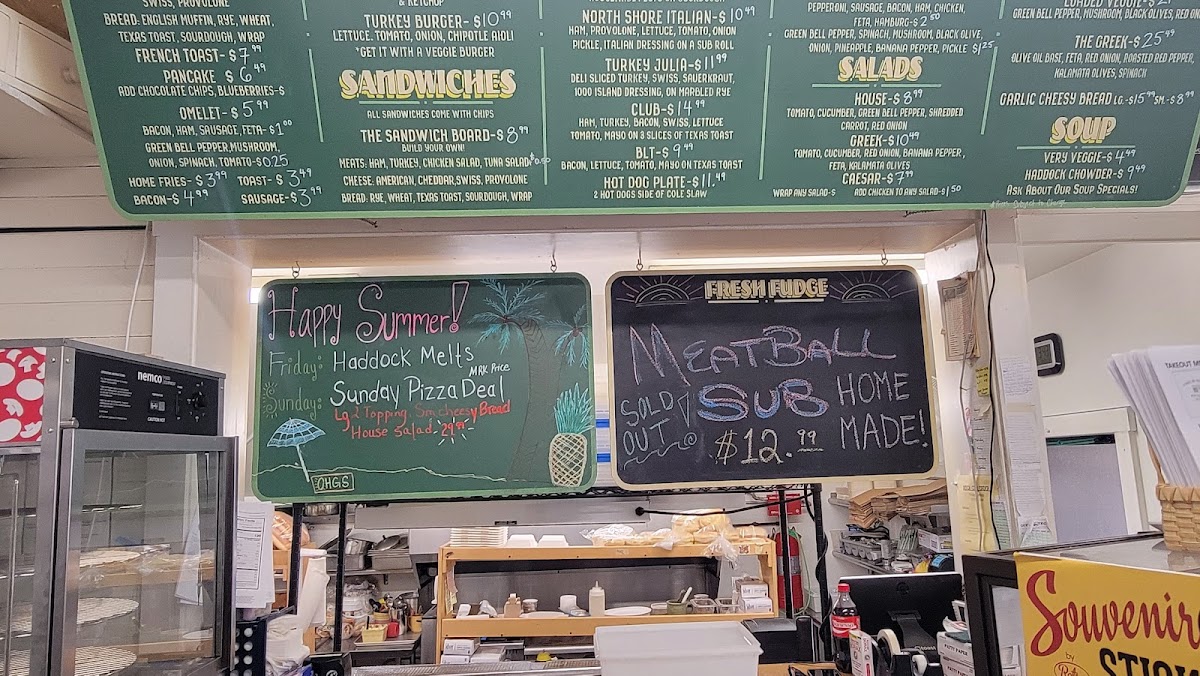 & KETCHUP
SWISS, PROVOLONE
BREAD: ENGLISH MUFFIN, RYE, WHEAT,
TEXAS TOAST, SOURDOUGH, WRAP
FRENCH TOAST-$7.99
PANCAKE $6.49
ADD CHOCOLATE CHIPS, BLUEBERRIES-$
OMELET-$5.99
BACON, HAM, SAUSAGE, FETA-$1.00
GREEN BELL PEPPER, MUSHROOM,
ONION, SPINACH, TOMATO-$0.25
HOME FRIES-$3.99 TOAST-$3.49
BACON-$4.99 SAUSAGE-$3.99
TURKEY BURGER-$10.99
LETTUCE, TOMATO, ONION, CHIPOTLE AIOLI
*GET IT WITH A VEGGIE BURGER
SANDWICHES
ALL SANDWICHES COME WITH CHIPS
THE SANDWICH BOARD-$8.99
BUILD YOUR OWN!
MEATS: HAM, TURKEY, CHICKEN SALAD, TUNA SALAD
CHEESE: AMERICAN, CHEDDAR, SWISS, PROVOLONE
BREAD: RYE, WHEAT, TEXAS TOAST, SOURDOUGH, WRAP
NORTH SHORE ITALIAN-$10.49
HAM, PROVOLONE, LETTUCE, TOMATO, ONION
PICKLE, ITALIAN DRESSING ON A SUB ROLL
TURKEY JULIA-$11.99
DELI SLICED TURKEY, SWISS, SAUERKRAUT,
1000 ISLAND DRESSING, ON MARBLED RYE
CLUB-$14.99
HAM, TURKEY, BACON, SWISS, LETTUCE
TOMATO, MAYO ON 3 SLICES OF TEXAS TOAST
BLT-$9.99
BACON, LETTUCE, TOMATO, MAYO ON TEXAS TOAST
HOT DOG PLATE-$11.49
2 HOT DOGS SIDE OF COLE SLAW
PEPPERONI, SAUSAGE, BACON, HAM, CHICKEN,
FETA, HAMBURG-$2.50
GREEN BELL PEPPER, SPINACH, MUSHROOM, BLACK OLIVE,
ONION, PINEAPPLE, BANANA PEPPER, PICKLE $1.25
SALADS
HOUSE-$8.99
TOMATO, CUCUMBER, GREEN BELL PEPPER, SHREDDED
CARROT, RED ONION
GREEK-$10.49
TOMATO, CUCUMBER, RED ONION, BANANA PEPPER,
FETA, KALAMATA OLIVES
CAESAR-$7.99
WRAP ANY SALAD-$ ADD CHICKEN TO ANY SALAD-$1.50
LOADED VEGGIE-$
GREEN BELL PEPPER, MUSHROOM, BLACK OLIVES, RED
THE GREEK-$25.49
OLIVE OIL BASE, FETA, RED ONION, ROASTED RED PEPPER,
KALAMATA OLIVES, SPINACH
GARLIC CHEESY BREAD LG.-$15.99 SM.-$8.99
SOUP
VERY VEGGIE-$4.99
HADDOCK CHOWDER-$9.49
ASK ABOUT OUR SOUP SPECIALS!
Happy Summer!
Friday: Haddock Melts
MRK Price
Sunday: Sunday Pizza Deal
Lg 2 Topping, Sm cheesy Bread
House Salad 29.99
OHGS
FRESH FUDGE
MEATBALL
SUB
SOLD OUT!
HOME MADE!
$12.99
nemco
TAKEOUT
Souvenir
by